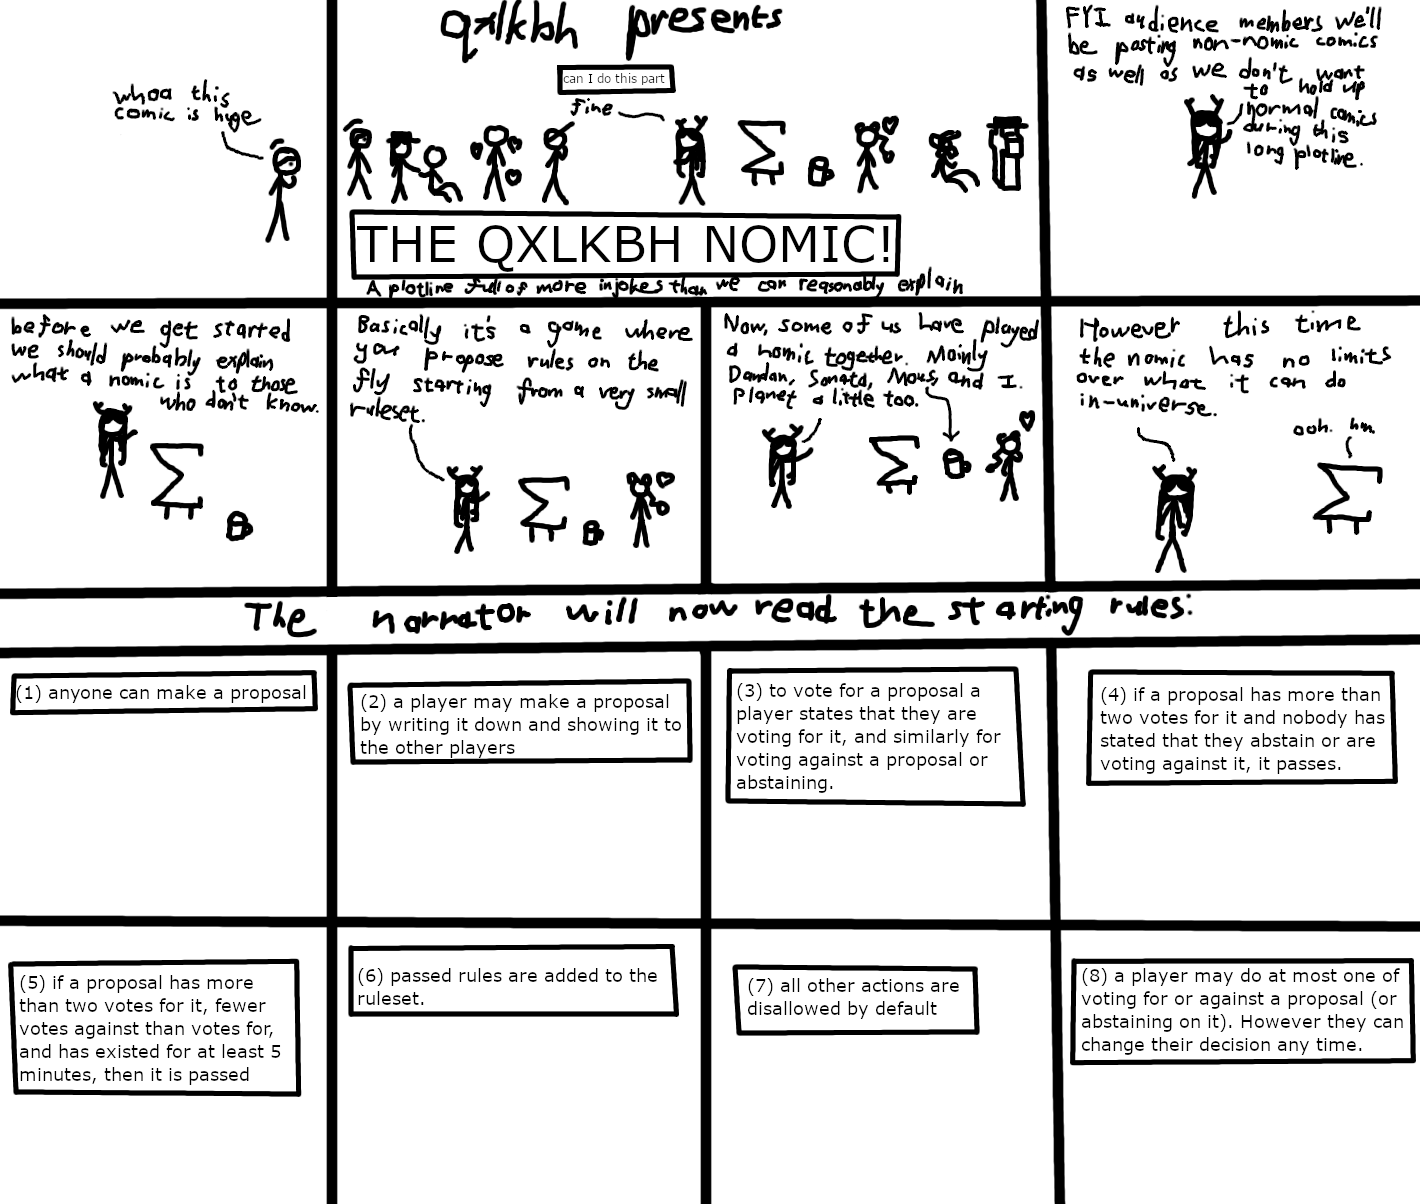 whoa this
comic is huge
qxlkbh presents
can I do this part
fine
THE QXLKBH NOMIC!
A plotline full of more injokes than we can reasonably explain
FYI audience members we'll
be posting non-nomic comics
as well as we don't want
to hold up
normal comics
during this
long plotline.
before we get started
we should probably explain
what a nomic is to those
who don't know.
Basically it's a game where
you propose rules on the
fly starting from a very small
ruleset.
Now, some of us have played
a nomic together. Mainly
Dandan, Sonata, Mous, and I.
Planet a little too.
However this time
the nomic has no limits
over what it can do
in-universe.
ooh. hm.
The narrator will now read the starting rules:
(1) anyone can make a proposal
(2) a player may make a proposal
by writing it down and showing it to
the other players
(3) to vote for a proposal a
player states that they are
voting for it, and similarly for
voting against a proposal or
abstaining.
(4) if a proposal has more than
two votes for it and nobody has
stated that they abstain or are
voting against it, it passes.
(5) if a proposal has more
than two votes for it, fewer
votes against than votes for,
and has existed for at least 5
minutes, then it is passed
(6) passed rules are added to the
ruleset.
(7) all other actions are
disallowed by default
(8) a player may do at most one of
voting for or against a proposal (or
abstaining on it). However they can
change their decision any time.